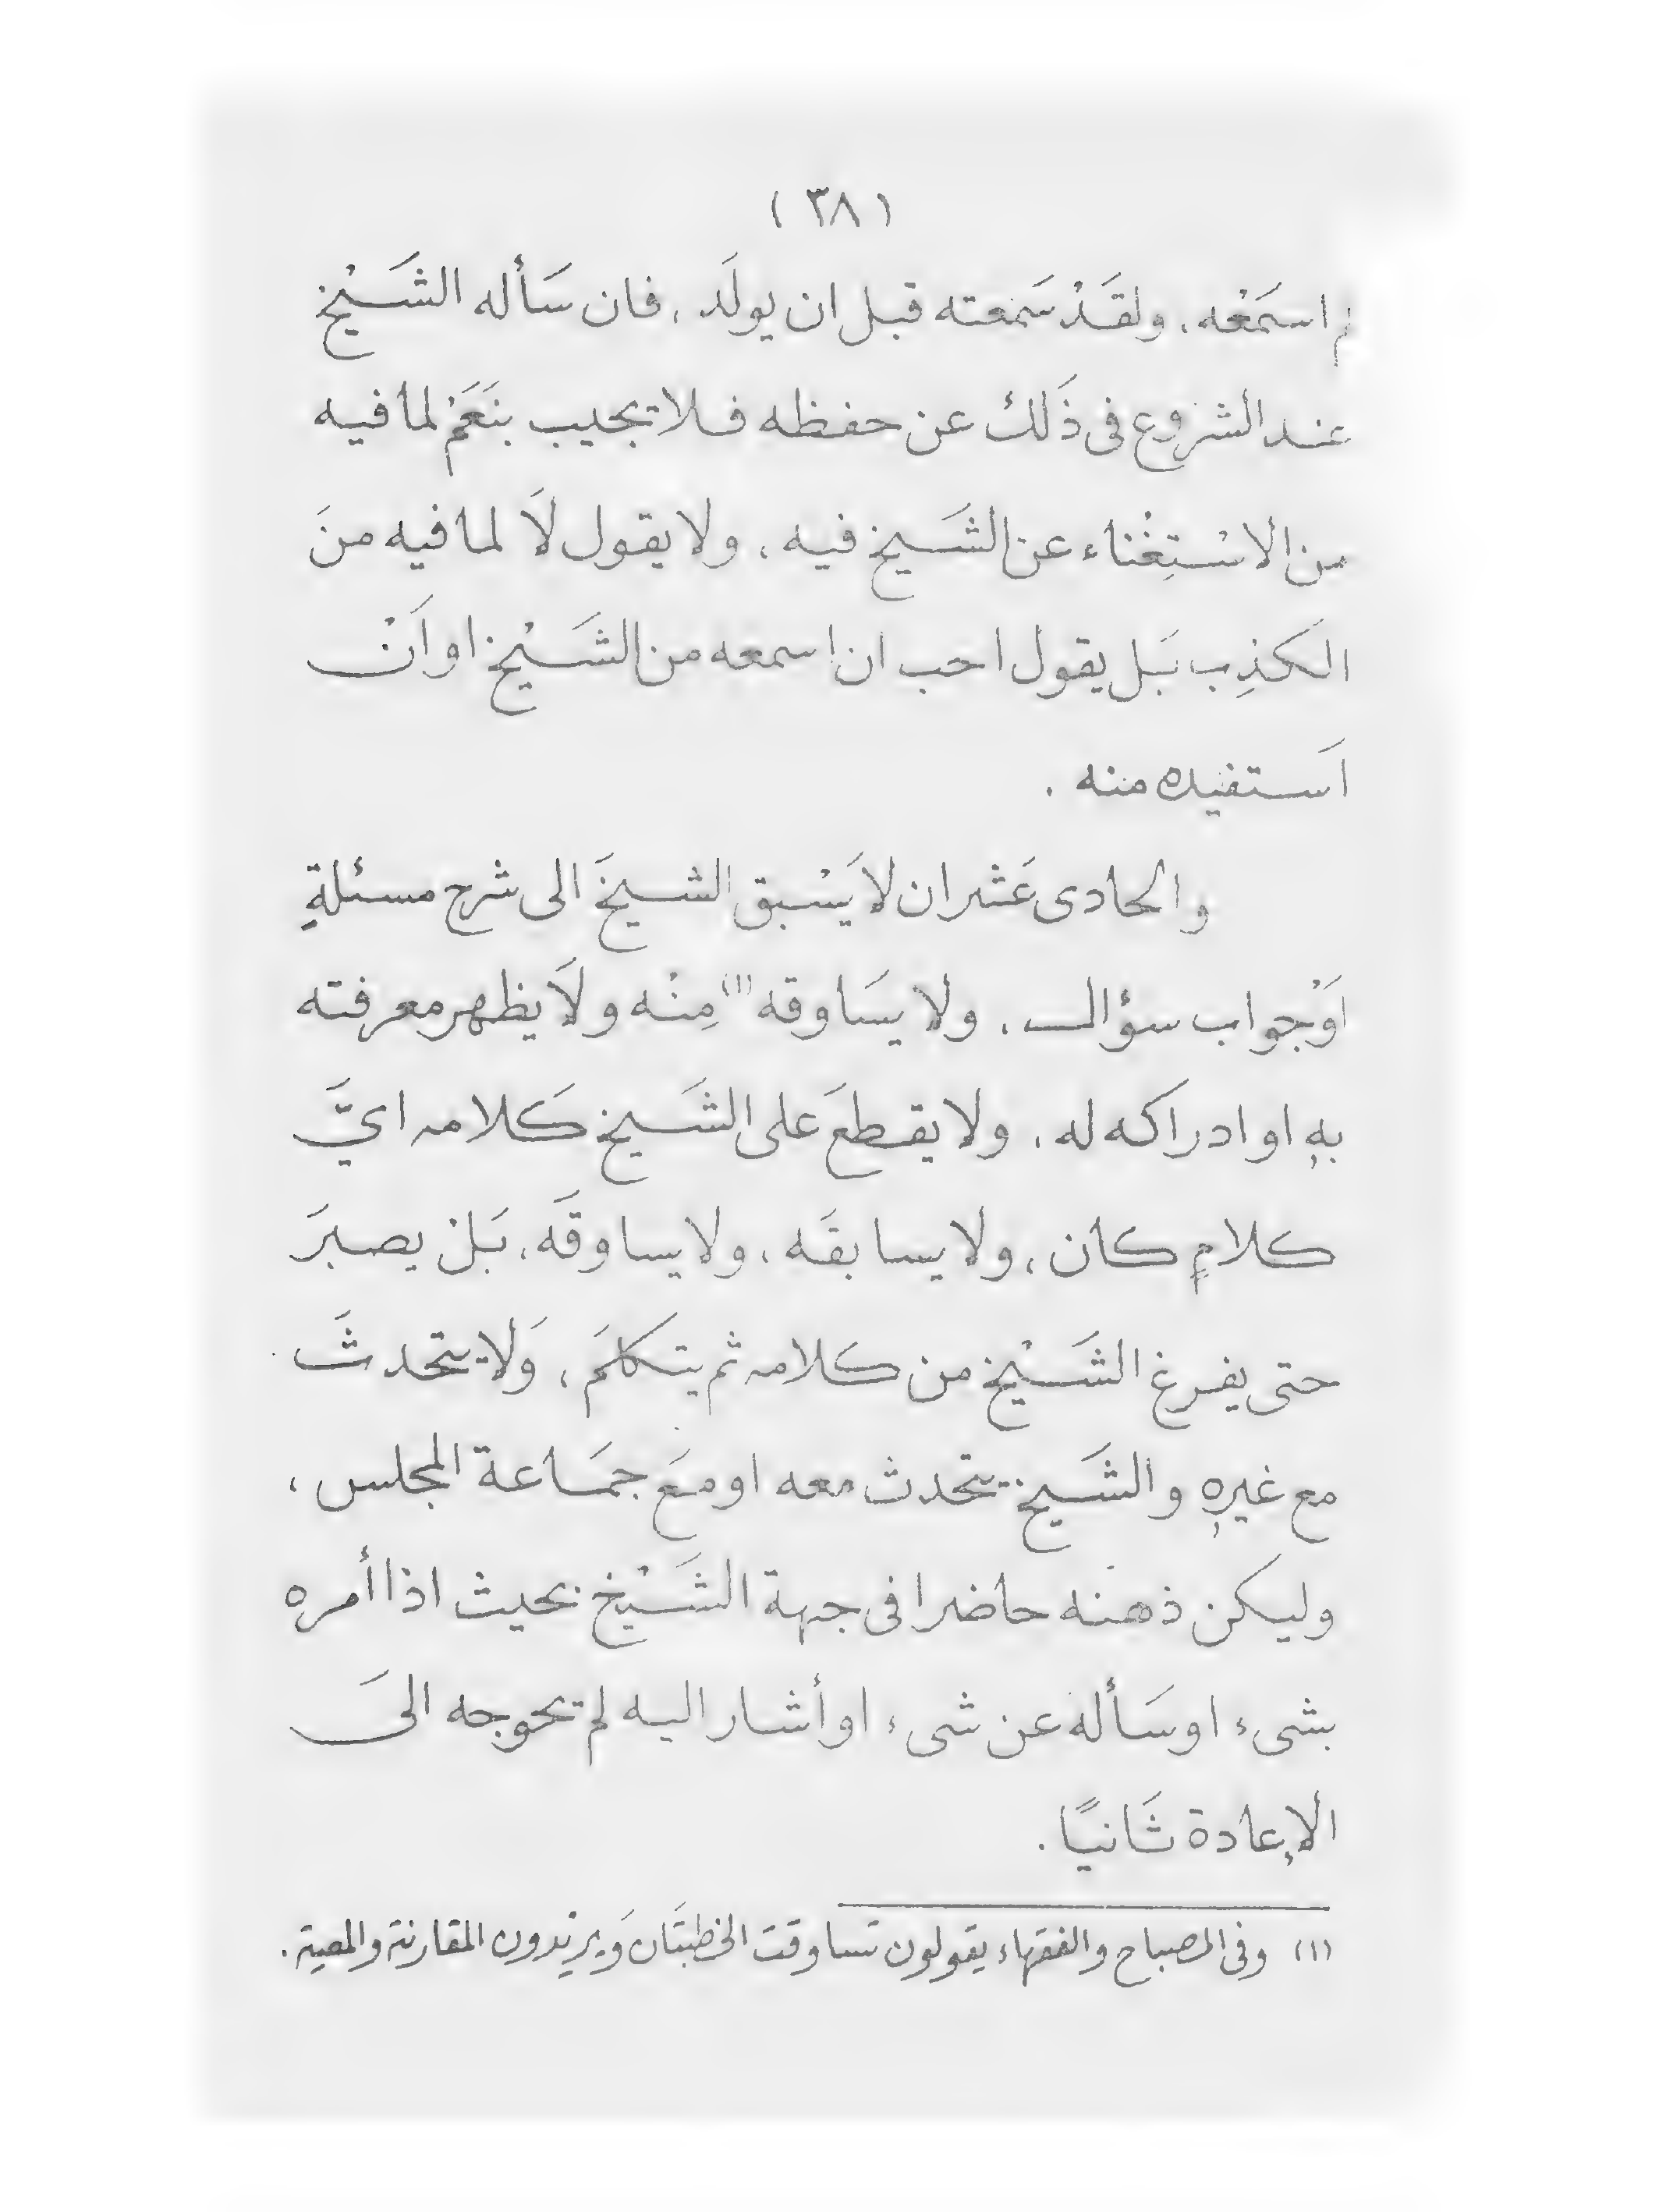 ( ٣٨ )
اسمَعْه، ولقَدْ سَمعته قبل ان يولَد، فان سَأله الشَيْخ
عند الشروع فى ذَلك عن حفظه فلا تجيب بنَعَمْ لما فيه
من الاسْتِغْناء عن الشَيخ فيه، ولا يقول لاَ لما فيه منَ
الكذِب بَل يقول احب ان اسمعه من الشَيْخ او اَنْ
اَستفيده منه .
والحادى عَشر ان لا يَسْبق الشيخَ الى شرح مسئلةٍ
اَوْجواب سؤال، ولا يسَاوقه (١) مِنْه ولاَ يظهر معرفته
بهِ او ادراكه له، ولا يقطعَ على الشَيخ كَلامه ايَّ
كلامٍ كان، ولا يسابقَه، ولا يساوقَه، بَلْ يصبرَ
حتى يفرغ الشَيْخ من كلامه ثم يتكلمَ، وَلا يتحدثَ
مع غيرهِ والشَيخ يتحدث معه او معَ جمَاعة المجلس،
وليكن ذهنه حاضرا فى جهة الشَيْخ بحيث اذا أمره
بشىء او سَأله عن شىء او أشار اليه لم تحوجه الىَ
الإعادة ثَانيًا .
(١) وفى المصباح والفقهاء يقولون تساوقت الخطبتَان وَيريْدون المقارنة والمعية .